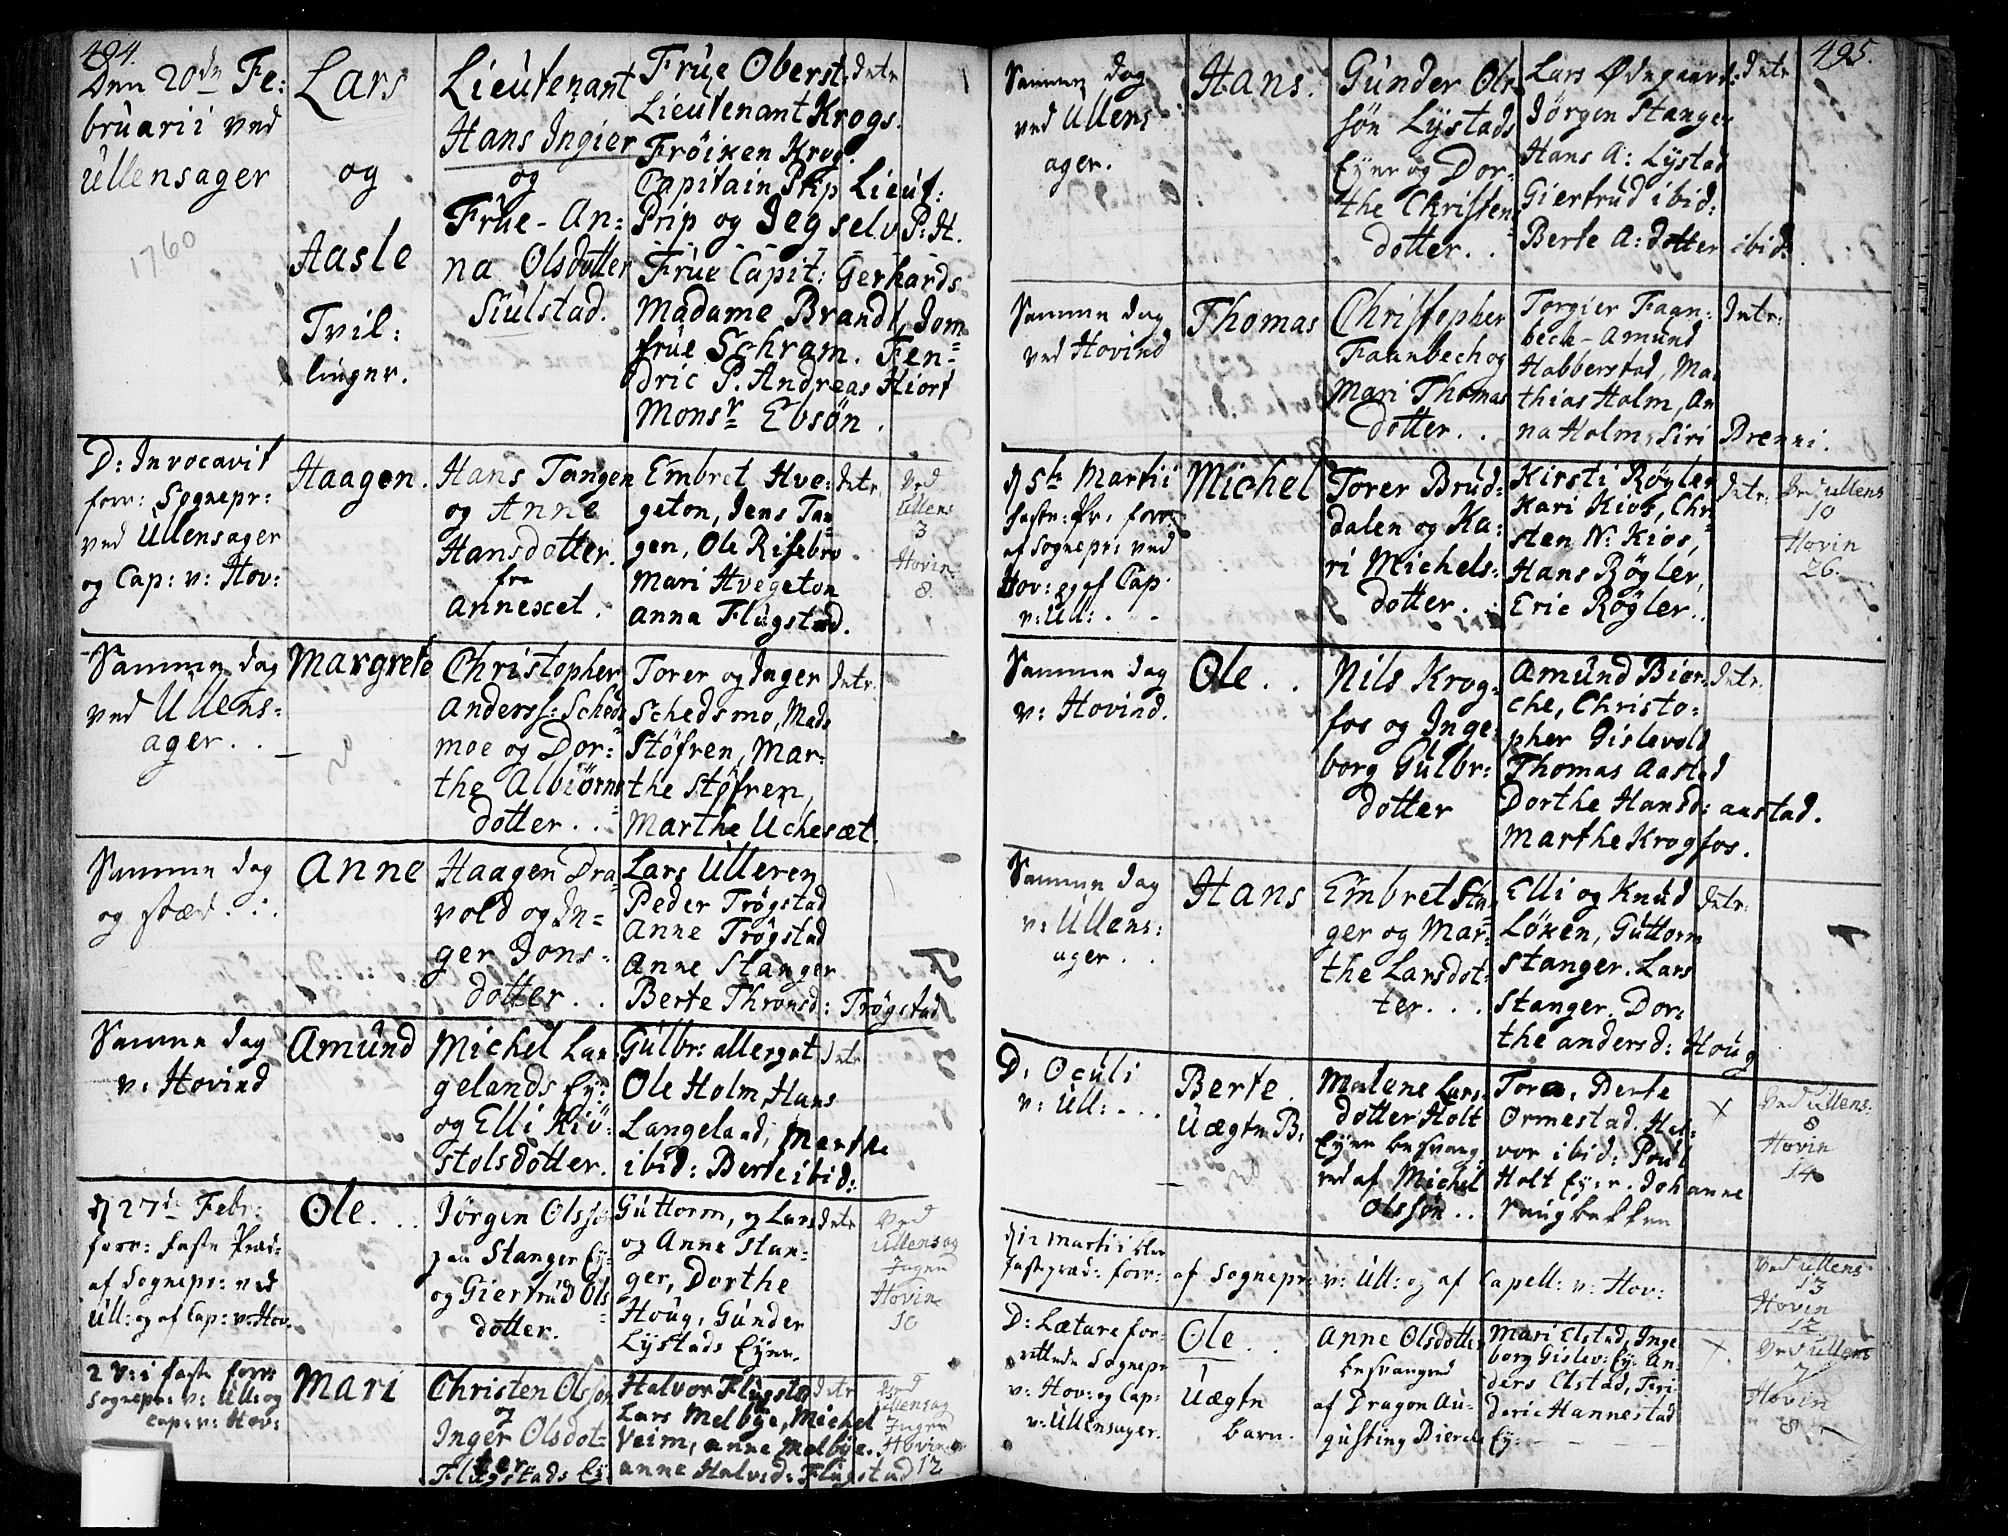 494.
Den 20de Fe:
bruarii ved
Ullensager
1760
Lars
og
Aasle
Tvil:
linger.
Lieutenant
Hans Ingier
og
Frue - An=
na Olsdotter
Siulstad.
Frue Oberst:
Lieutenant Krogs.
Frøiken Krog.
Capitain Prip Lieut:
Prip og Jeg selv P: H.
Frue Capit: Gerhards
Madame Brandt Jom=
frue Schram. Fen=
dric P. Andreas Hiort
Monsr Ebsøn.
Intr
D: Invocavit
forr: Sognepr:
ved Ullensager
og Cap: v: Hov:
Haagen.
Hans Tangen
og Anne
Hansdotter.
fra
Annexet.
Embret Hve:
geton, Jens Tan=
gen, Ole Risebro
Mari Hvegeton
Anna Flugstad.
Intr.
Ved
Ullens
3
Hovin
8.
Samme dag
ved Ullens=
ager. .
Margrete
Christopher
Anderss: Scheds
moe og Dor=
the Albiørns
dotter. .
Torer og Inger
Schedsmo, Mads
Støfren, Mar=
the Støfren,
Marthe Uchesæt.
Intr.
Samme dag
og stæd. .
Anne
Haagen Dra=
vold og In=
ger Jons=
dotter. .
Lars Ulleren
Peder Trøgstad
Anne Trøgstad
Anne Stanger
Berte Thronsd: Trøgstad
Samme dag
v: Hovind
Amund
Michel Lan
gelands Ey:
og Elli Kiø=
stolsdotter.
Gulbr: Allergot
Ole Holm, Hans
Langeland, Marthe
ibid: Berte ibid:
Intr
d 27de Febr:
forr: faste Præd:
af Sognepr: ved
Ull: og af Cap: v: Hov.
Ole. . .
Jørgen Olssøn
paa Stanger Ey:
og Giertrud Ols
dotter.
Guttorm, og Lars
og Anne Stan=
ger, Dorthe
Houg, Gunder
Lystads Eyer.
Intr
Ved
Ullensag
Ingen
Hovin
10
2 v: i faste forr:
Sognepr: v: Ull: og
Cap: v: Hov:
Mari
Christen Olssøn
og
Inger Olsdot=
ter
Flugstads Ey
Halvor Flugstad
Lars Melbye, Michel
Veim, Anne Melbye.
Anne Halvsd: Flugstad
Intr
Ved
Ullensag
Ingen
Hovin
12
495.
Samme dag
ved Ullens
ager.
Hans.
Gunder Ols
søn Lystads
Eyer og Dor=
the Christens
dotter. .
Lars Ødegaard
Jørgen Stanger
Hans A: Lystad
Giertrud ibid:
Berte A: dotter ibid:
Intr
Samme dag
ved Hovind
Thomas
Christopher
Faanbech og
Mari Thomas
dotter. .
Torgier Faan=
bech - Amund
Habberstad, Ma=
thias Holm, An
na Holm, Siri Brenni.
Intr:
d 5te Martii
faste: Pr: forr:
af Sognepr: ved
Hov: og af Cap:
v: Ull: . -
Michel
Torer Brud=
dalen og Ka=
ri Michels=
dotter. .
Kirsti Røgler
Kari Kios, Chri=
sten N: Kios,
Hans Røgler,
Eric Røgler.
Intr.
Ved Ullens
10
Hovin
26.
Samme dag
v: Hovind.
Ole. .
Nils Krog=
fos og Inge=
borg Gulbr:
dotter
Amund Bior=
che, Christo=
pher Gislevold
Thomas Aastad
Dorthe Hansd: Aastad.
Marthe Krogfos.
Intr.
Samme dag
v: Ullens:
ager. .
Hans
Embret Stan
ger og Mar=
the Larsdot=
ter. . .
Elli og Knud
Løken, Guttorm
Stanger. Lars
Stanger. Dor=
the Andersd: Houg
Intr.
D: Oculi
v: Ull: . . .
Berte.
Uægte B:
Malene Lars
dotter Holt
Eyer besvang:
red af Michel
Olssøn. .
Tora, Berte
Ormestad. Hal=
vor ibid: Poul
Holt Eyer. Johanne
Haugbakken
x
Ved Ullens:
8
Hovin
14
d 12 Martii blev
fastepræd: forr: af Sognepr: v: Ull: og af Capell: v: Hov:
Ved Ullens
13
Hovin
12
D: Lætare for=
rettede Sognepr
v: Hov: og Cap:
v: Ullensager.
Ole. .
Uægte
barn.
Anne Olsdotter
besvangred
af Dragon Au=
gusting Bierche
Mari Elstad, Inge
borg Gislev: Ey: An=
ders Elstad, Fri
deric Hannestad
Ey: - - -
x.
Ved Ullens
7
Hovin
8